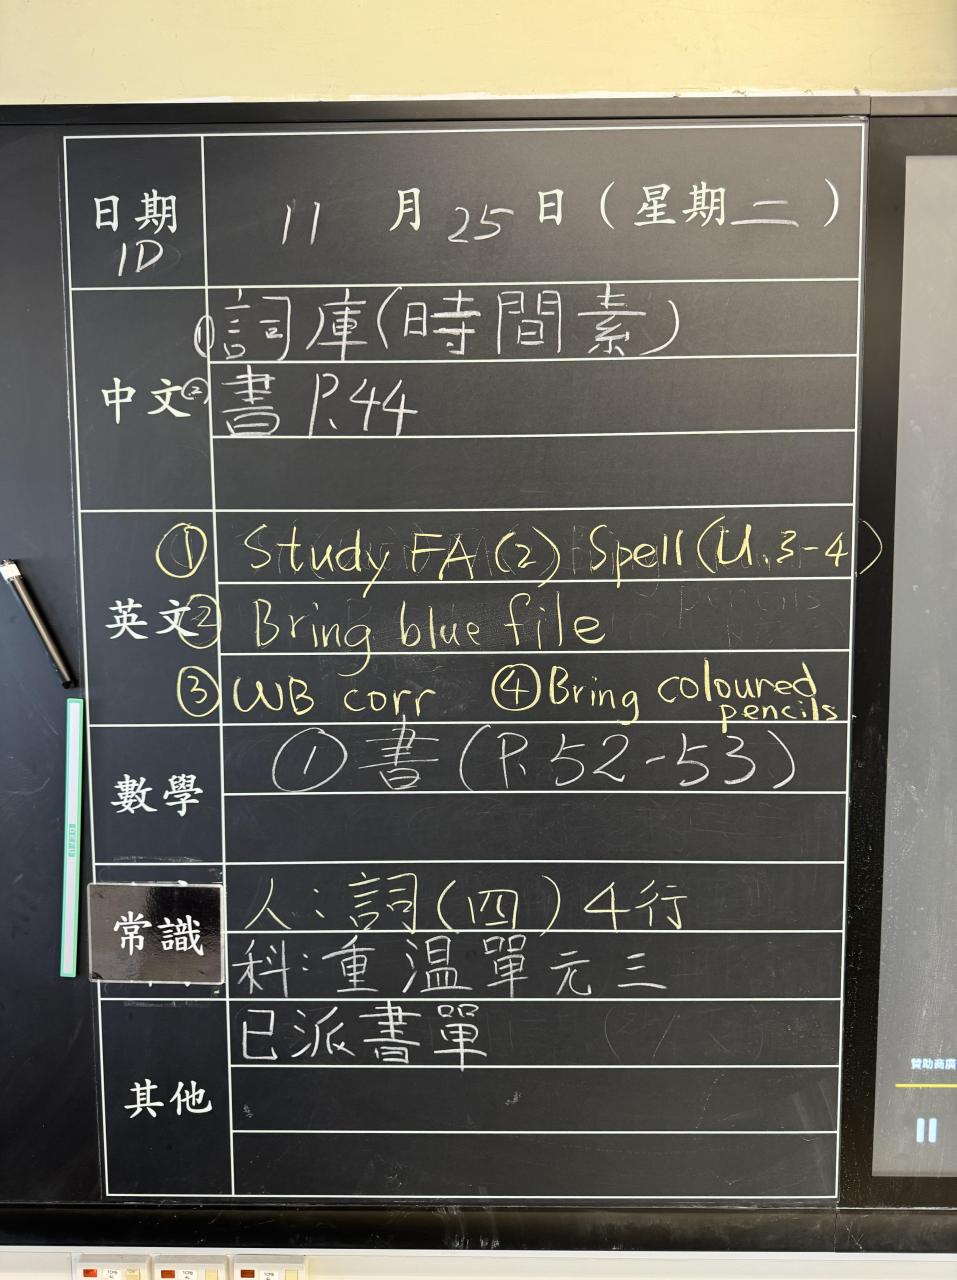 日期 11 月 25 日 ( 星期二 )
1D
① 詞庫(時間素)
中文 ② 書 P.44
① Study FA (2) Spell (U.3-4)
英文 ② Bring blue file
③ WB corr ④ Bring coloured pencils
① 書 (P.52-53)
數學
人：詞(四) 4行
常識
科：重溫單元三
已派書單
其他
贊助商廣